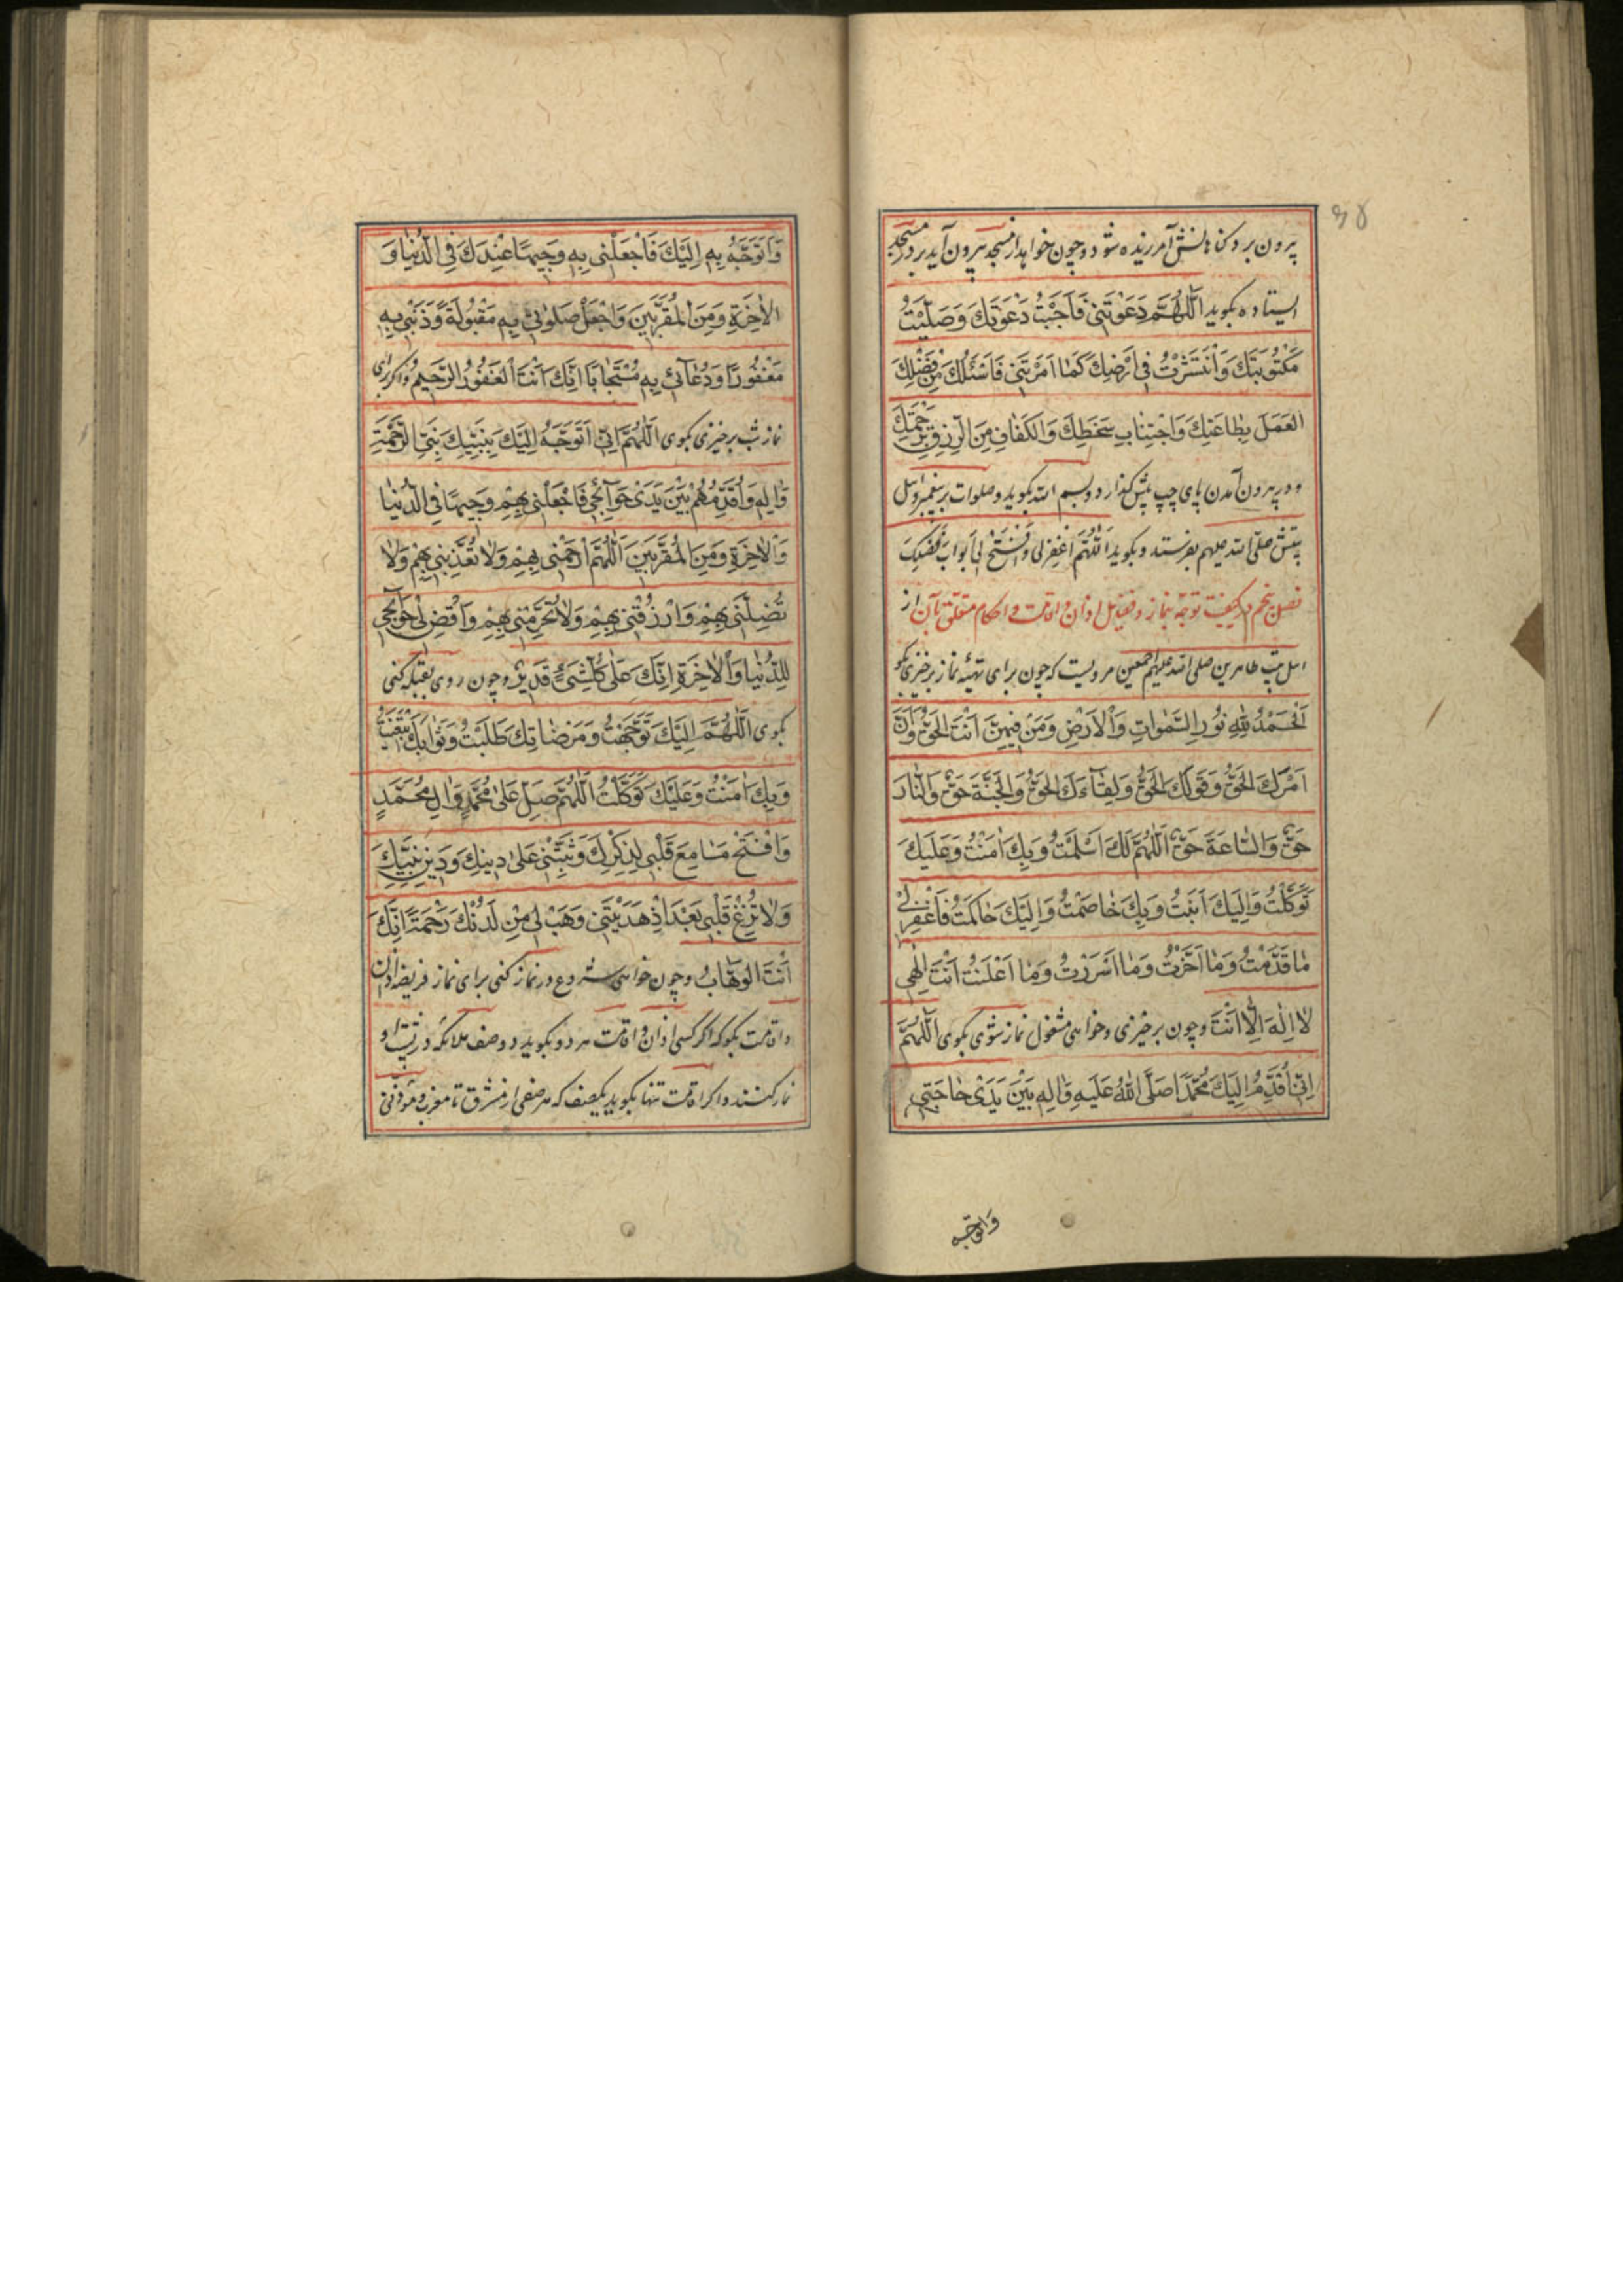 ۶۵
بیرون برد گناهانش آمرزیده شود و چون خواهد از مسجد بیرون آید بر در مسجد
ایستاده بگوید اَللّٰهُمَّ دَعَوْتَنی فَاَجَبْتُ دَعْوَتَكَ وَصَلَّیْتُ
مَكْتُوبَتَكَ وَانْتَشَرْتُ فی اَرْضِكَ كَمٰا اَمَرْتَنی فَاَسْئَلُكَ مِنْ فَضْلِكَ
الْعَمَلَ بِطٰاعَتِكَ وَاجْتِنٰابِ سَخَطِكَ وَالْكَفٰافِ مِنَ الرِّزْقِ بِرَحْمَتِكَ
و در بیرون آمدن پای چپ پیش گذارد و بسم الله بگوید و صلوات بر پیغمبر و اهل
بیتش صلّی الله علیهم بفرستد و بگوید اَللّٰهُمَّ اغْفِرْ لی وَافْتَحْ لی اَبْوابَ فَضْلِكَ
فصل پنجم در کیفیّت توجّه بنماز و فضایل اذان و اقامت و احکام متعلّق بآن از
اهل بیت طاهرین صلی الله علیهم اجمعین مرویست که چون برای تهیّهٔ نماز برخیزی بگو
اَلْحَمْدُ لِلّٰهِ نُورِ السَّمٰوٰاتِ وَالْاَرْضِ وَمَنْ فیهِنَّ اَنْتَ الْحَقُّ وَاَنَّ
اَمْرَكَ الْحَقُّ وَقَوْلَكَ الْحَقُّ وَلِقٰآءَكَ الْحَقُّ وَالْجَنَّةَ حَقٌّ وَالنّٰارَ
حَقٌّ وَالسّٰاعَةَ حَقٌّ اَللّٰهُمَّ لَكَ اَسْلَمْتُ وَبِكَ اٰمَنْتُ وَعَلَیْكَ
تَوَكَّلْتُ وَاِلَیْكَ اَنَبْتُ وَبِكَ خٰاصَمْتُ وَاِلَیْكَ حٰاكَمْتُ فَاغْفِرْ لی
مٰا قَدَّمْتُ وَمٰا اَخَّرْتُ وَمٰا اَسْرَرْتُ وَمٰا اَعْلَنْتُ اَنْتَ اِلٰهی
لٰا اِلٰهَ اِلّٰا اَنْتَ و چون برخیزی و خواهی مشغول نماز شوی بگوی اَللّٰهُمَّ
اِنّی اُقَدِّمُ اِلَیْكَ مُحَمَّدًا صَلَّی اللّٰهُ عَلَیْهِ وَاٰلِهِ بَیْنَ یَدَیْ حٰاجَتی
وَاَتَوَجَّهُ
وَاَتَوَجَّهُ بِهِ اِلَیْكَ فَاجْعَلْنی بِهِ وَجیهًا عِنْدَكَ فِی الدُّنْیٰا وَ
الْاٰخِرَةِ وَمِنَ الْمُقَرَّبینَ وَاجْعَلْ صَلوٰتی بِهِ مَقْبُولَةً وَذَنْبی بِهِ
مَغْفُورًا وَدُعٰآئی بِهِ مُسْتَجٰابًا اِنَّكَ اَنْتَ الْغَفُورُ الرَّحیمُ و اگر برای
نماز شب برخیزی بگوی اَللّٰهُمَّ اِنّی اَتَوَجَّهُ اِلَیْكَ بِنَبِیِّكَ نَبِیِّ الرَّحْمَةِ
وَاٰلِهِ وَاُقَدِّمُهُمْ بَیْنَ یَدَیْ حَوٰآئِجی فَاجْعَلْنی بِهِمْ وَجیهًا فِی الدُّنْیٰا
وَالْاٰخِرَةِ وَمِنَ الْمُقَرَّبینَ اَللّٰهُمَّ ارْحَمْنی بِهِمْ وَلٰا تُعَذِّبْنی بِهِمْ وَلٰا
تُضِلَّنی بِهِمْ وَارْزُقْنی بِهِمْ وَلٰا تُحَرِّمْنی بِهِمْ وَاقْضِ لی حَوٰآئِجی
لِلدُّنْیٰا وَالْاٰخِرَةِ اِنَّكَ عَلیٰ كُلِّ شَیْءٍ قَدیرٌ و چون روی بقبله کنی
بگوی اَللّٰهُمَّ اِلَیْكَ تَوَجَّهْتُ وَمَرْضٰاتِكَ طَلَبْتُ وَثَوٰابَكَ ابْتَغَیْتُ
وَبِكَ اٰمَنْتُ وَعَلَیْكَ تَوَكَّلْتُ اَللّٰهُمَّ صَلِّ عَلیٰ مُحَمَّدٍ وَاٰلِ مُحَمَّدٍ
وَافْتَحْ مَسٰامِعَ قَلْبی لِذِكْرِكَ وَثَبِّتْنی عَلیٰ دینِكَ وَدینِ نَبِیِّكَ
وَلٰا تُزِغْ قَلْبی بَعْدَ اِذْ هَدَیْتَنی وَهَبْ لی مِنْ لَدُنْكَ رَحْمَةً اِنَّكَ
اَنْتَ الْوَهّٰابُ و چون خواهی شروع در نماز کنی برای نماز فریضه اذان
و اقامت بگو که اگر کسی اذان و اقامت هر دو بگوید دو صف ملائکه در پشت او
نماز کنند و اگر اقامت تنها بگوید یکصف که هر صفی از مشرق تا مغرب و مؤذنی